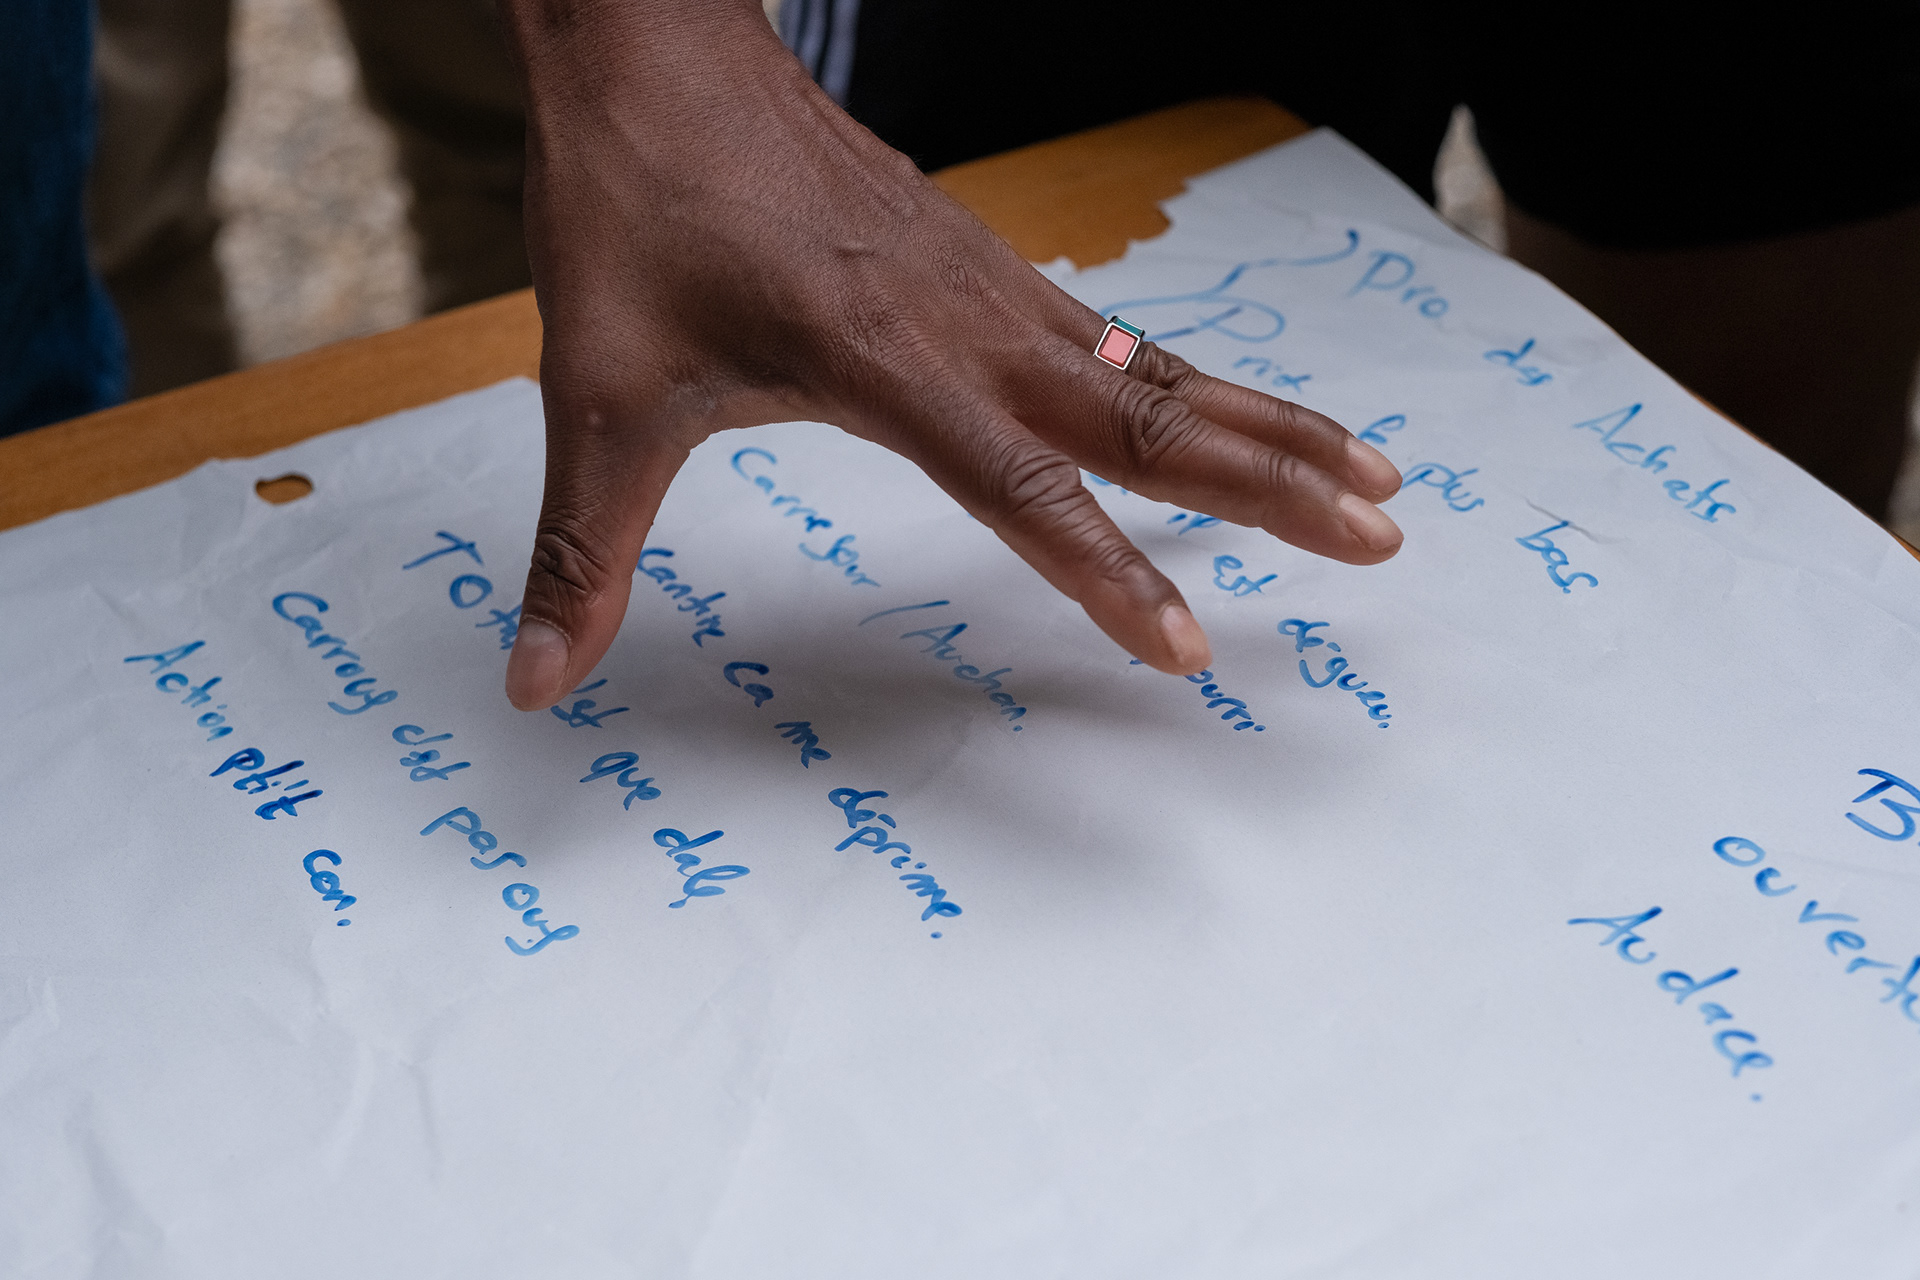 Pro des Achats
Prix le plus bas.
il est dégueu.
Carrefour / Auchan.
Cantine ca me déprime.
que dalf
Carrouf c'est pas ouf
Action ptit con.
Audace.